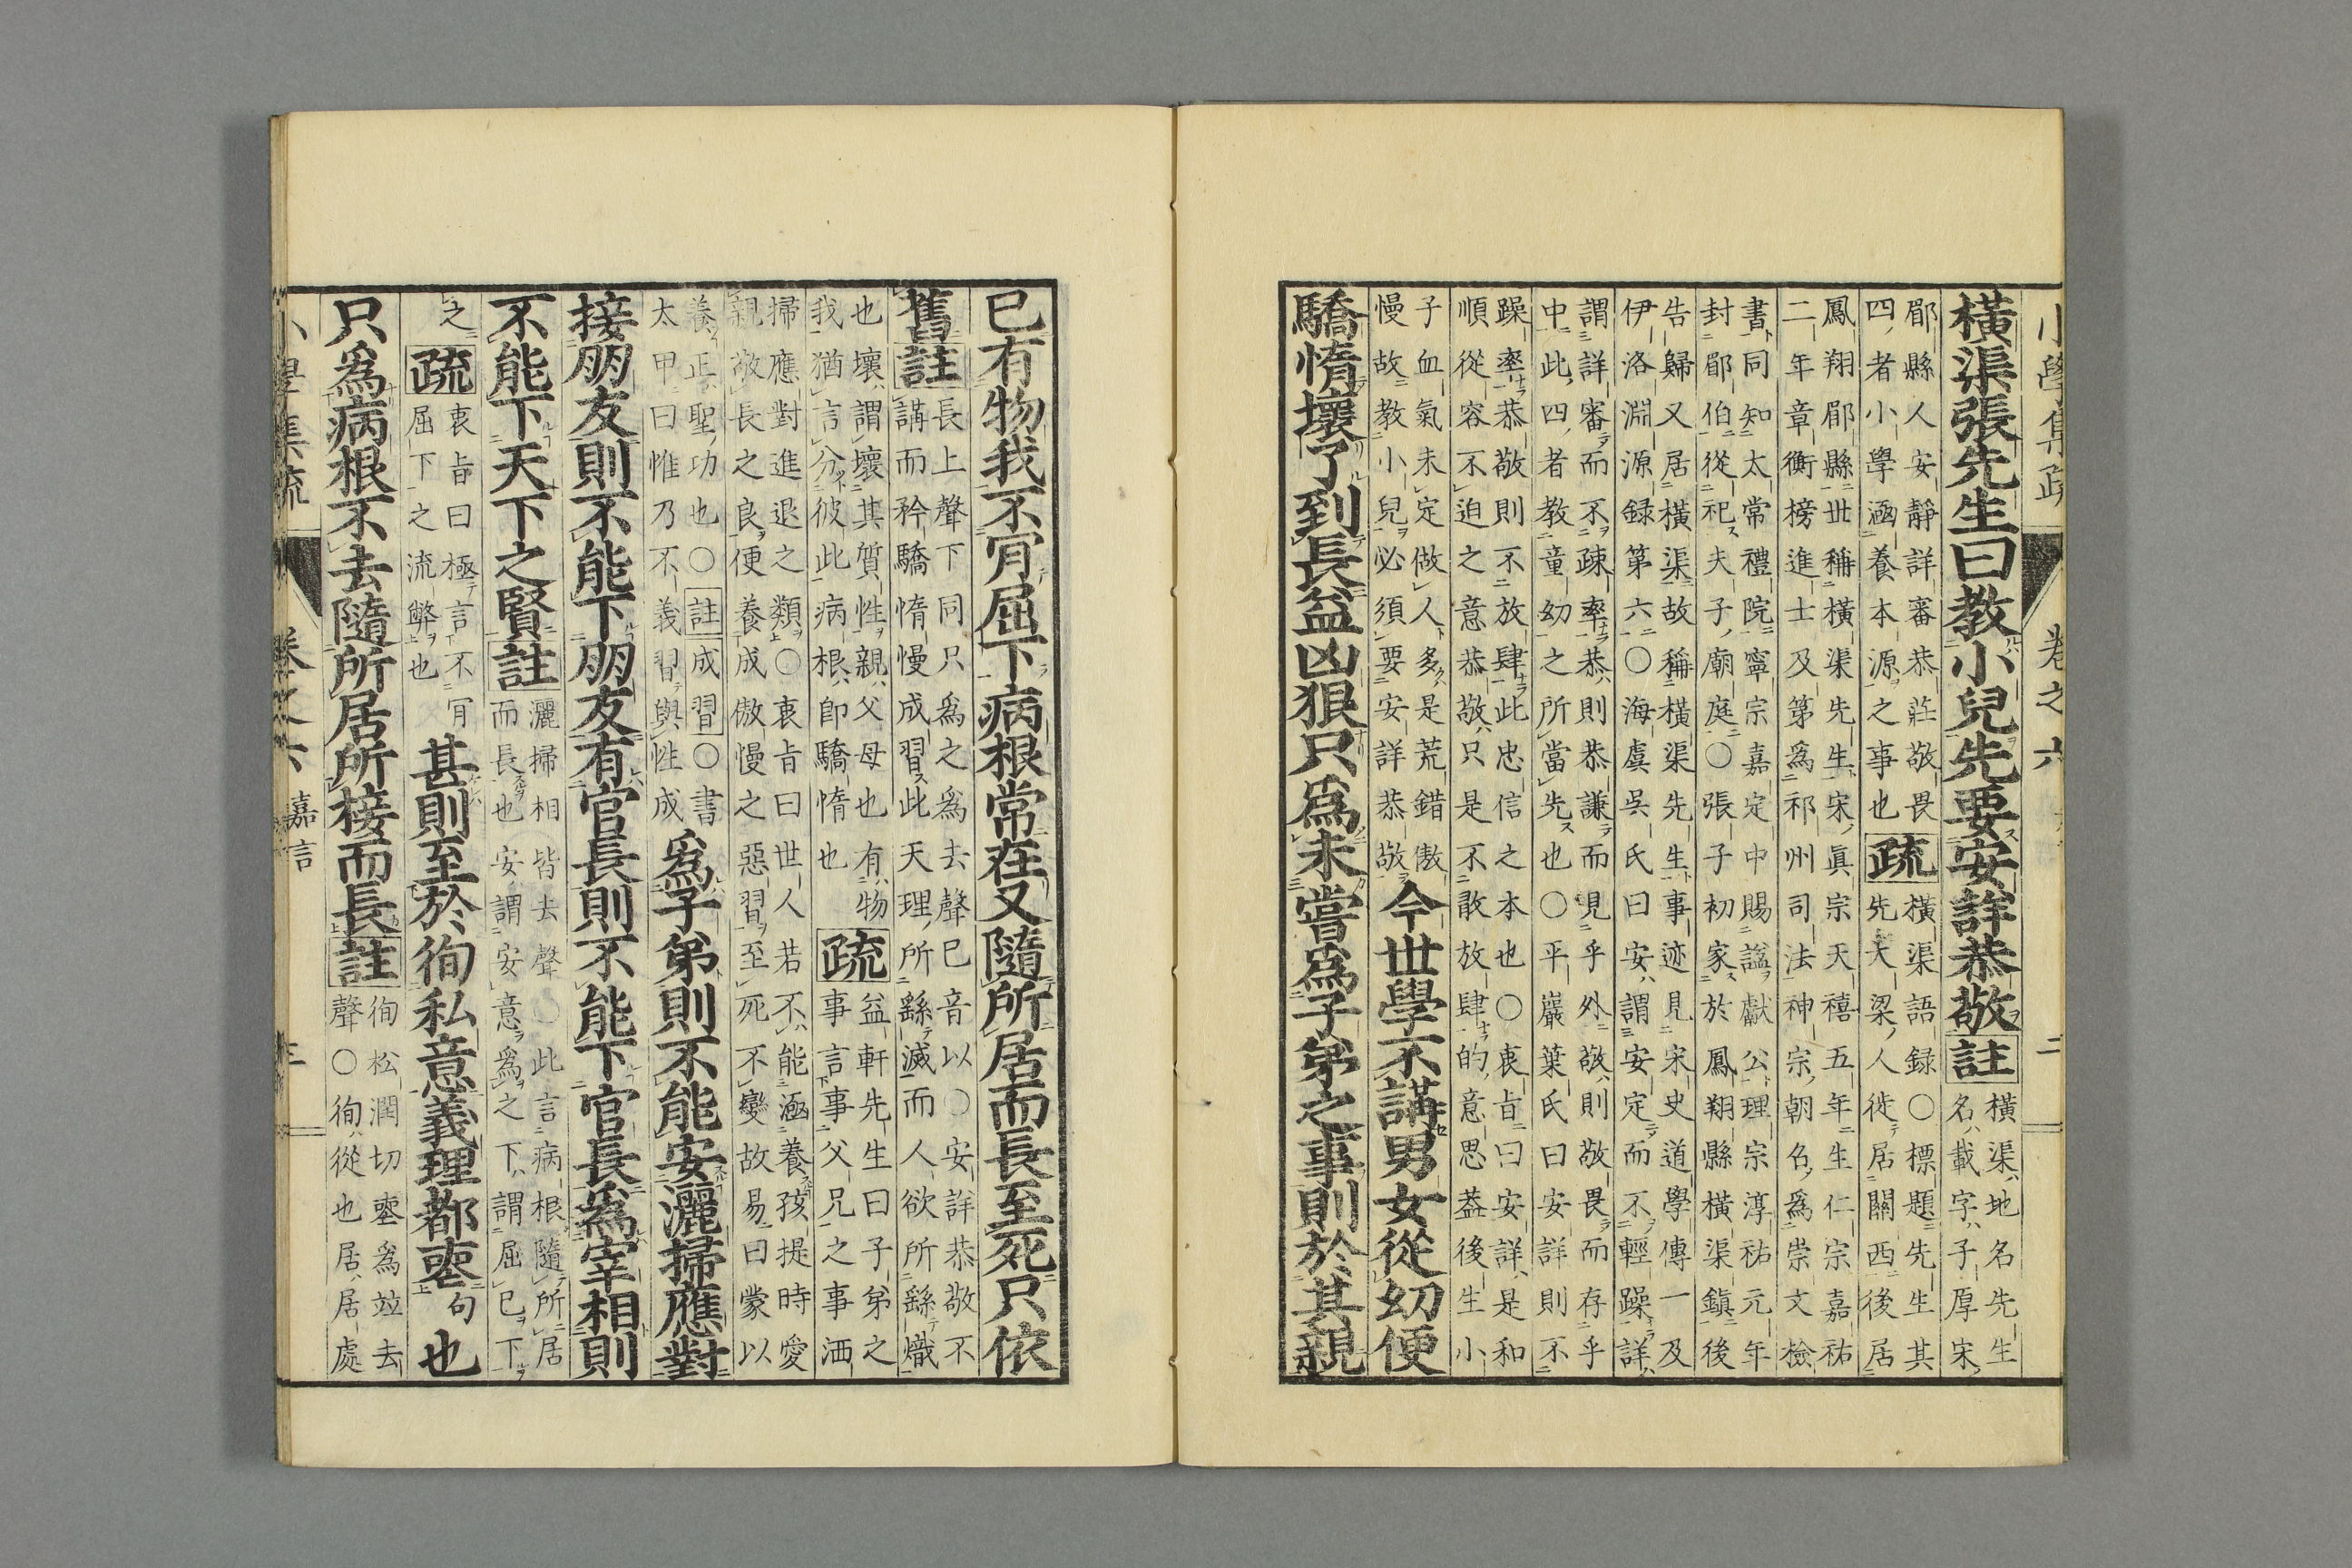 小學集疏 卷之六 二
橫渠張先生曰教小兒先要安詳恭敬註橫渠地名先生
名載字子厚宋
郿縣人安靜詳審恭莊敬畏
四者小學涵養本源之事也疏橫渠語録○標題先生其
先大梁人徙居關西後居
鳳翔郿縣世稱橫渠先生宋眞宗天禧五年生仁宗嘉祐
二年章衡榜進士及第爲祁州司法神宗朝名爲崇文檢
書同知太常禮院寧宗嘉定中賜謚獻公理宗淳祐元年
封郿伯從祀夫子廟庭○張子初家於鳳翔縣橫渠鎭後
告歸又居橫渠故稱橫渠先生事迹見宋史道學傳一及
伊洛淵源録第六○海虞吳氏曰安謂安定而不輕躁詳
謂詳審而不疎率恭則恭謙而見乎外敬則敬畏而存乎
中此四者教童幼之所當先也○平巖葉氏曰安詳則不
躁率恭敬則不放肆此忠信之本也○衷旨曰安詳是和
順從容不迫之意恭敬只是不敢放肆的意思葢後生小
子血氣未定做人多是荒錯傲
慢故教小兒必須要安詳恭敬今世學不講男女從幼便
驕惰壞了到長益凶狠只爲未嘗爲子弟之事則於其親
已有物我不肎屈下病根常在又隨所居而長至死只依
舊註長上聲下同只爲之爲去聲已音以○安詳恭敬不
講而矜驕惰慢成習此天理所繇滅而人欲所繇熾
也壞謂壞其質性親父母也有物
我猶言分彼此病根卽驕惰也疏益軒先生曰子弟之
事言事父兄之事洒
掃應對進退之類○衷旨曰世人若不能涵養孩提時愛
親敬長之良便養成傲慢之惡習至死不變故易曰蒙以
養正聖功也○註成習○書
太甲曰惟乃不義習與性成爲子弟則不能安灑掃應對
接朋友則不能下朋友有官長則不能下官長爲宰相則
不能下天下之賢註灑掃相皆去聲○此言病根隨所居
而長也安謂安意爲之下謂屈已下
之疏衷旨曰極言不肎
屈下之流弊也甚則至於徇私意義理都喪句也
只爲病根不去隨所居所接而長註徇松潤切喪爲竝去
聲○徇從也居居處
小學集疏 卷之六 嘉言